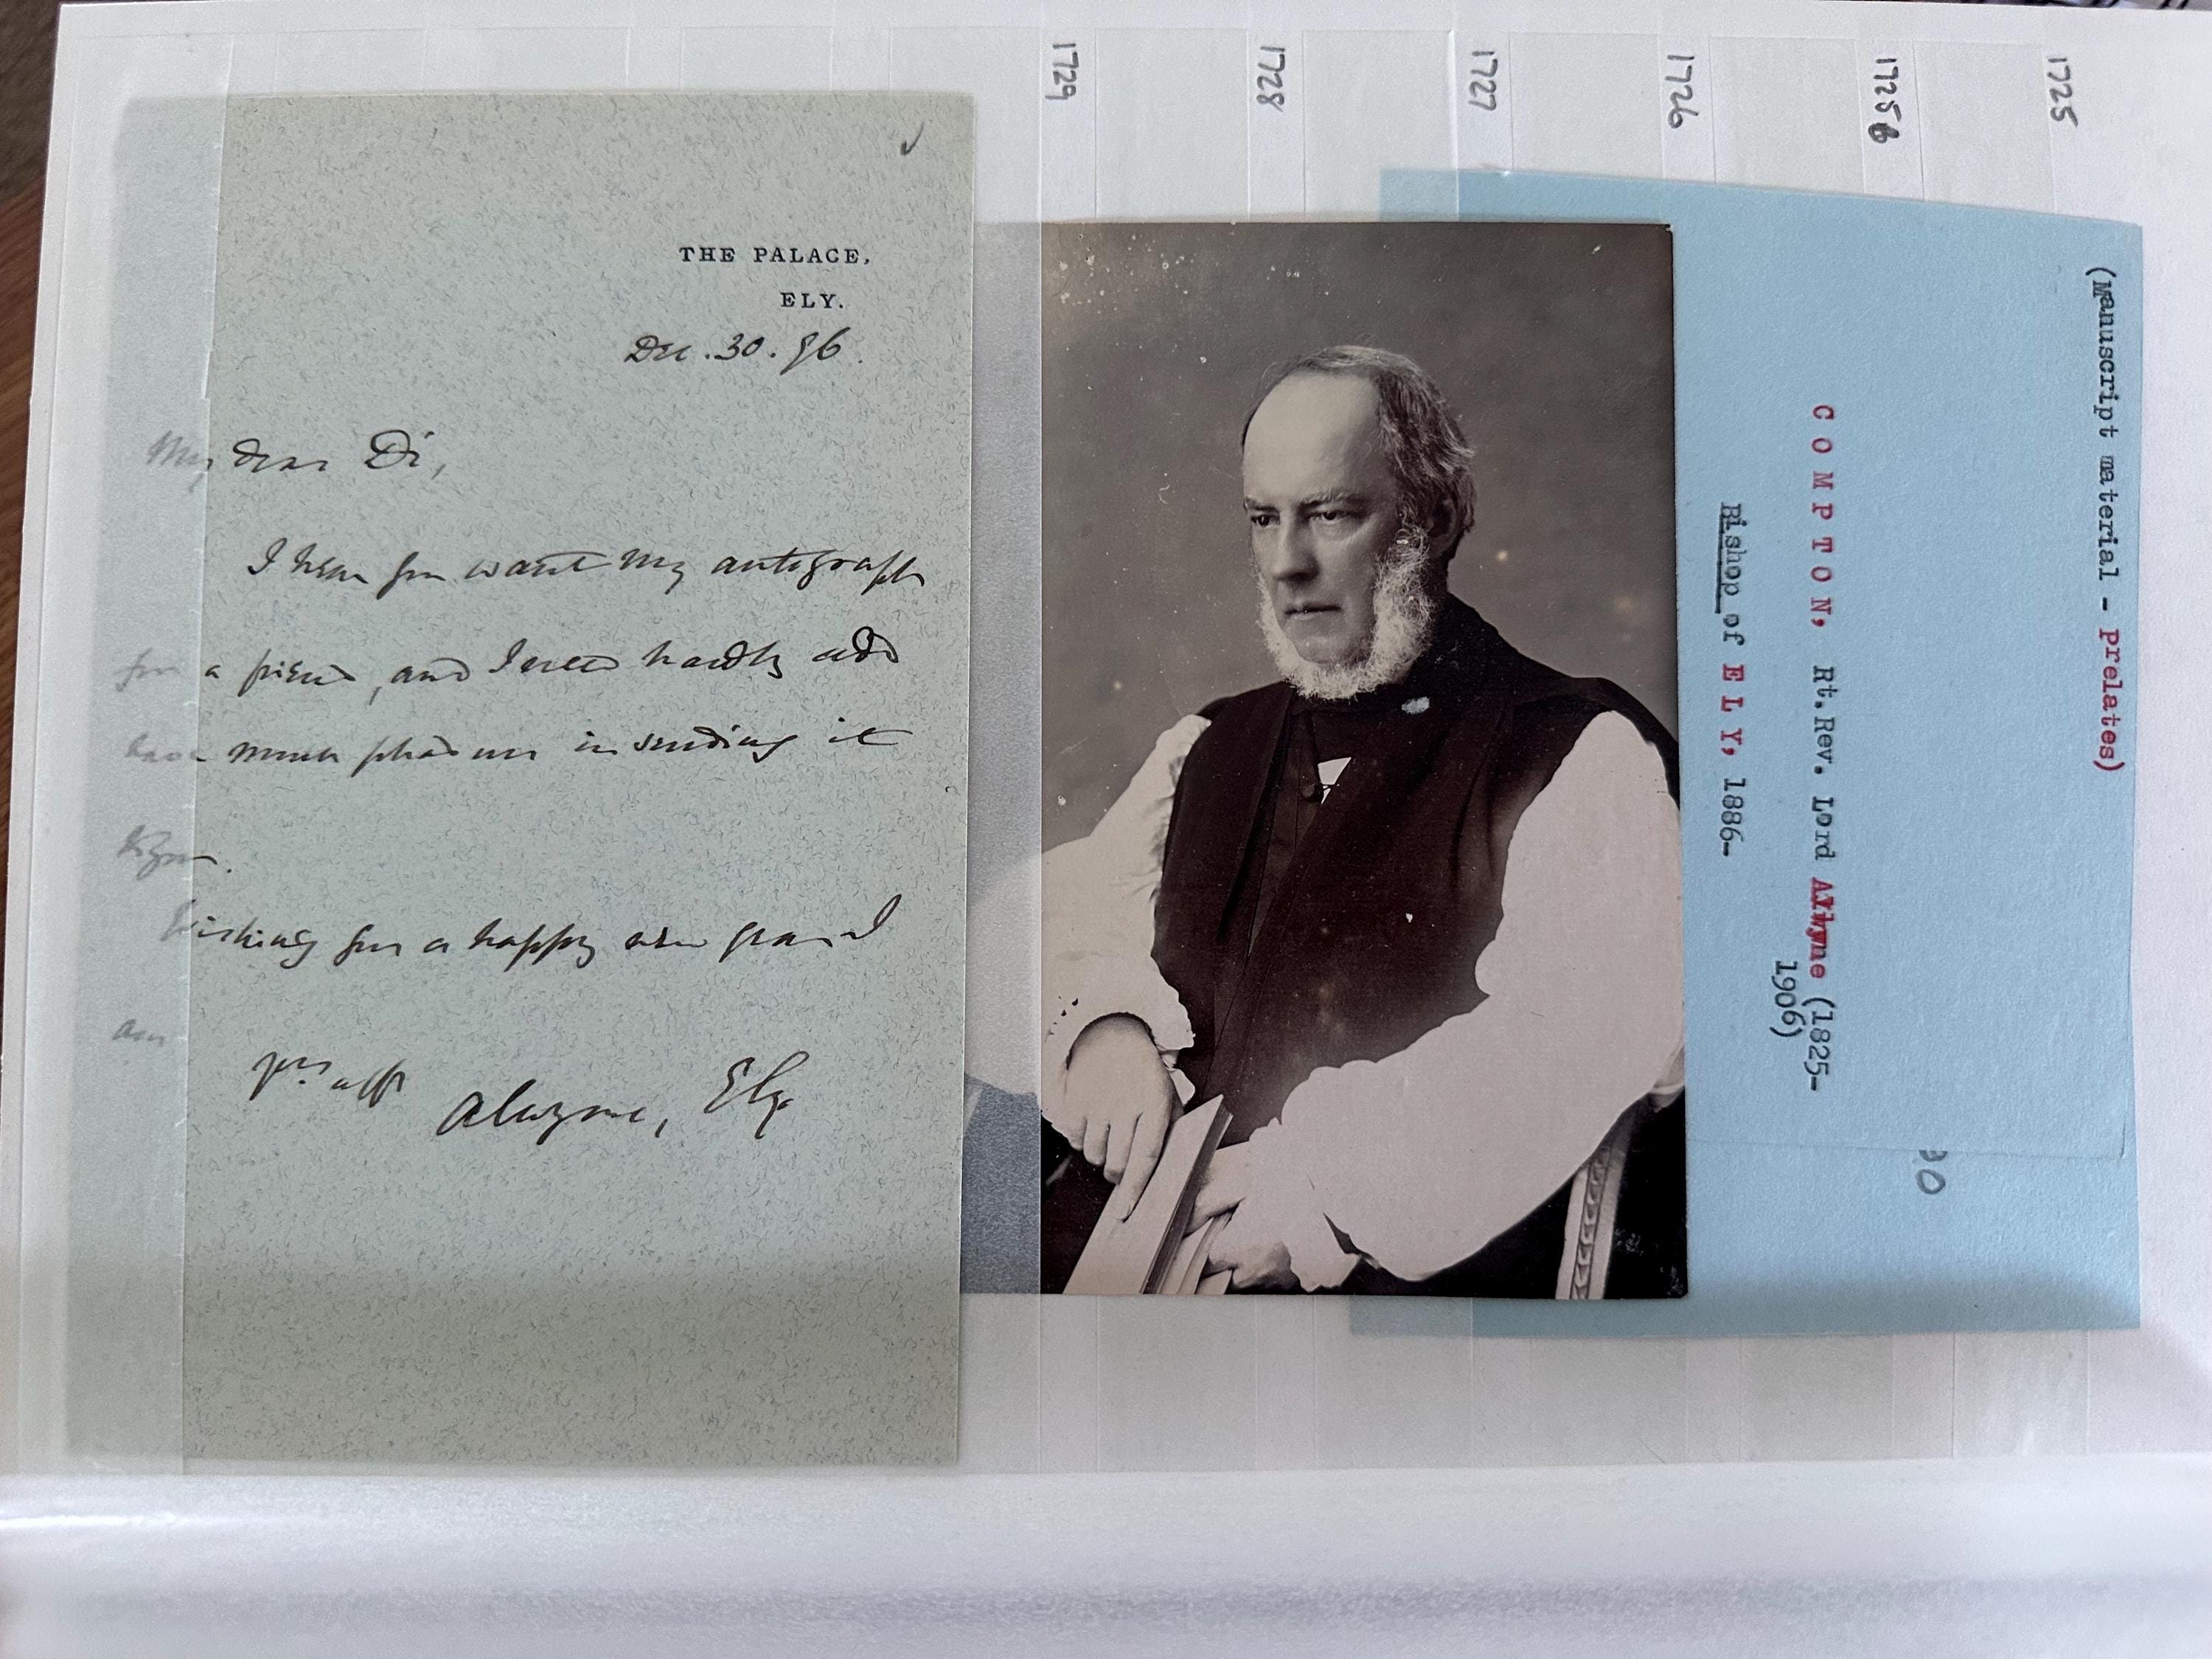 ✓
THE PALACE,
ELY.
Dec. 30. 96.
My dear Di,
I hear you want my autograph
for a friend, and I need hardly add
have much pleasure in sending it
to you.
Wishing you a happy new year I
am
yrs affly
Alwyne, Ely
1729
1728
1727
1726
1725b
1725
(Manuscript material - Prelates)
COMPTON, Rt.Rev. Lord Alwyne (1825-
1906)
Bishop of ELY, 1886-
30